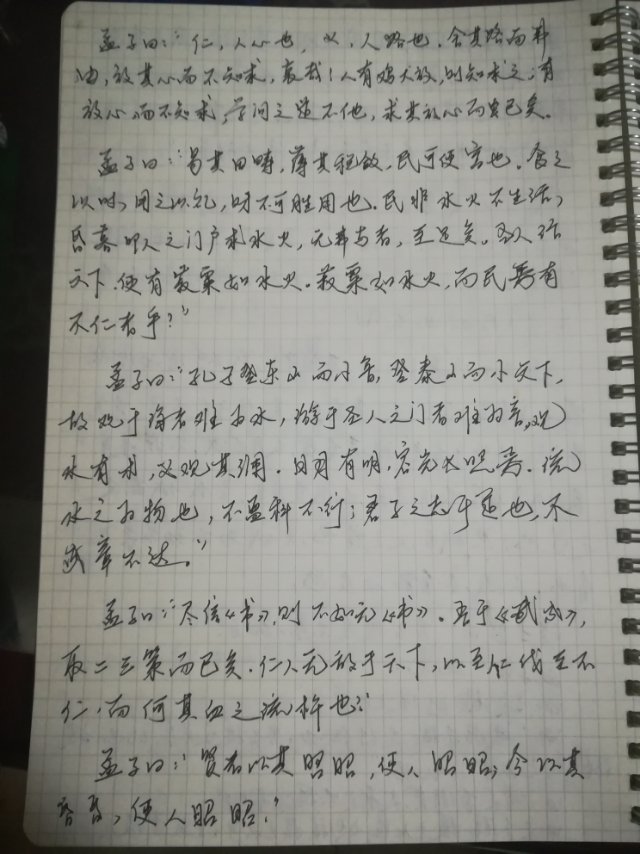 孟子曰：“仁，人心也，义，人路也。舍其路而弗
由，放其心而不知求，哀哉！人有鸡犬放，则知求之；有
放心而不知求，学问之道不他，求其放心而已矣。
孟子曰：“易其田畴，薄其税敛，民可使富也。食之
以时，用之以礼，财不可胜用也。民非水火不生活，
昏暮叩人之门户求水火，无弗与者，至足矣。圣人治
天下，使有菽粟如水火。菽粟如水火，而民焉有
不仁者乎？”
孟子曰：“孔子登东山而小鲁，登泰山而小天下，
故观于海者难为水，游于圣人之门者难为言，观
水有术，必观其澜。日月有明，容光必照焉。流
水之为物也，不盈科不行；君子之志于道也，不
成章不达。”
孟子曰：“尽信《书》，则不如无《书》。吾于《武成》，
取二三策而已矣。仁人无敌于天下，以至仁伐至不
仁，而何其血之流杵也？”
孟子曰：“贤者以其昭昭，使人昭昭；今以其
昏昏，使人昭昭。”